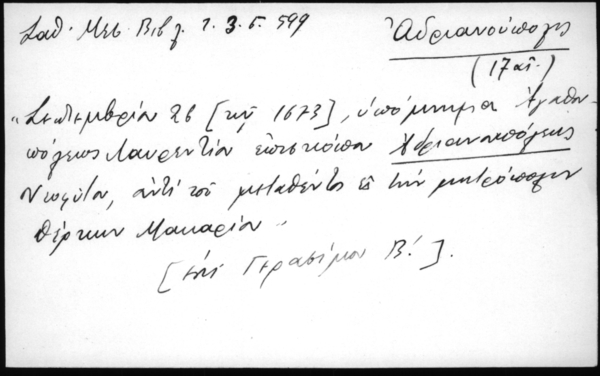 Σαθ. Μεσ. Βιβλ. τ. 3. σ. 599
Ἀδριανούπολις
(17 αἰ.)
"Σεπτεμβρίου 26 [τοῦ 1673], ὑπόμνημα Ἀγαθο-
πόλεως Λαυρεντίου ἐπισκόπου Ἀδριανουπόλεως
Νεοφύτου, ἀντὶ τοῦ μετατεθέντος εἰς τὴν μητρόπολιν
Θέρκων Μακαρίου"
[ἐπὶ Γερασίμου Β'.].